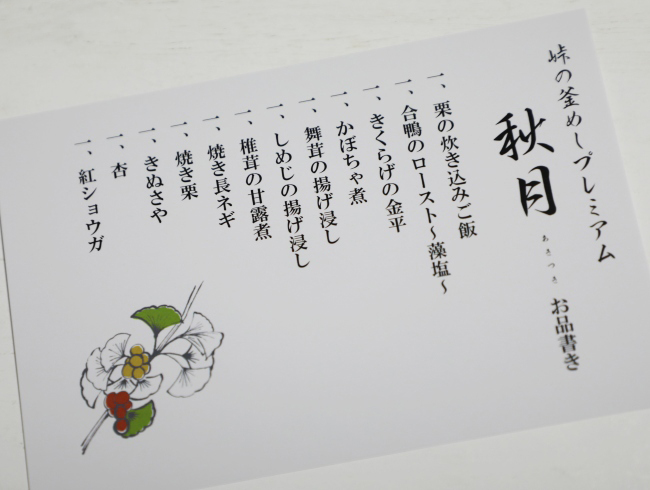 峠の釜めしプレミアム
秋月
あきつき
お品書き
一、栗の炊き込みご飯
一、合鴨のロースト～藻塩～
一、きくらげの金平
一、かぼちゃ煮
一、舞茸の揚げ浸し
一、しめじの揚げ浸し
一、椎茸の甘露煮
一、焼き長ネギ
一、焼き栗
一、きぬさや
一、杏
一、紅ショウガ